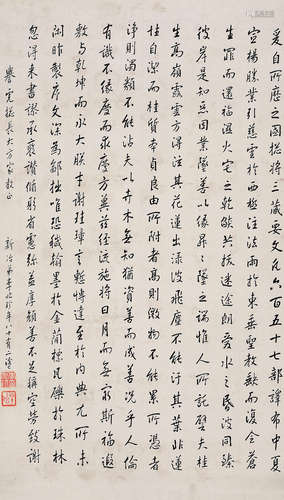 爰自所歷之國總將三藏要文凡六百五十七部譯布中夏
宣揚勝業引慈雲於西極注法雨於東垂聖教缺而復全蒼
生罪而還福濕火宅之乾燄共拔迷途朗愛水之昏波同臻
彼岸是知惡因業墜善以緣昇昇墜之端惟人所託譬夫桂
生高嶺雲露方得泫其花蓮出淥波飛塵不能汙其葉非蓮
性自潔而桂質本貞良由所附者高則微物不能累所憑者
淨則濁類不能沾夫以卉木無知猶資善而成善況乎人倫
有識不緣慶而求慶方冀茲經流施將日月而無窮斯福遐
敷與乾坤而永大朕才謝珪璋言慙博達至於內典尤所未
閑昨製序文深為鄙拙唯恐穢翰墨於金簡標瓦礫於珠林
忽得來書謬承褒讚循躬省慮彌益厚顏善不足稱空勞致謝
譽寬總長大方家教正
新治弟李年八十有二